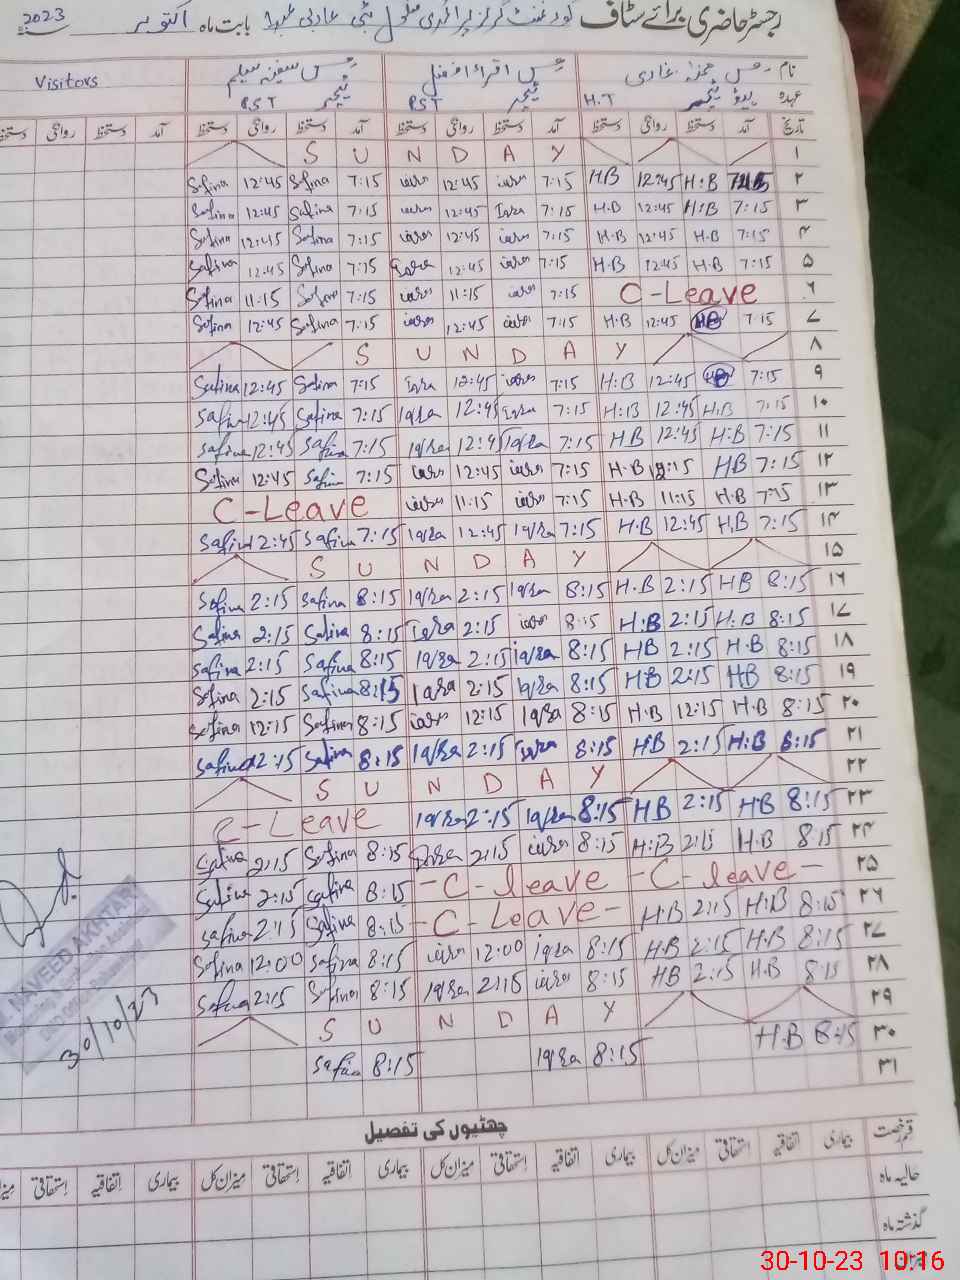 رجسٹر حاضری برائے سٹاف گورنمنٹ گرلز پرائمری سکول بابت ماہ اکتوبر 2023
نام مس غازی مس اقراء افضل مس سفینہ سلیم Visitors
عہدہ ہیڈ ٹیچر H.T ٹیچر PST ٹیچر PST
تاریخ آمد دستخط روانگی دستخط آمد دستخط روانگی دستخط آمد دستخط روانگی دستخط آمد دستخط روانگی دستخط
S U N D A Y ۱
Safina 12:45 Safina 7:15 اقراء 12:45 اقراء 7:15 H.B 12:45 H:B 7:15 ۲
Safina 12:45 Safina 7:15 اقراء 12:45 Iqra 7:15 H.B 12:45 H:B 7:15 ۳
Safina 12:45 Safina 7:15 اقراء 12:45 اقراء 7:15 H.B 12:45 H.B 7:15 ۴
Safina 12:45 Safina 7:15 Iqra 12:45 اقراء 7:15 H.B 12:45 H.B 7:15 ۵
Safina 11:15 Safina 7:15 اقراء 11:15 اقراء 7:15 C-Leave ۶
Safina 12:45 Safina 7:15 اقراء 12:45 اقراء 7:15 H.B 12:45 HB 7:15 ۷
S U N D A Y ۸
Safina 12:45 Safina 7:15 Iqra 12:45 اقراء 7:15 H:B 12:45 HB 7:15 ۹
Safina 12:45 Safina 7:15 Iqra 12:45 Iqra 7:15 H:B 12:45 H.B 7:15 ۱۰
Safina 12:45 Safina 7:15 Iqra 12:45 Iqra 7:15 HB 12:45 H:B 7:15 ۱۱
Safina 12:45 Safina 7:15 اقراء 12:45 اقراء 7:15 H.B 12:15 HB 7:15 ۱۲
C-Leave اقراء 11:15 اقراء 7:15 H.B 11:15 H.B 7:15 ۱۳
Safina 2:45 Safina 7:15 Iqra 12:45 Iqra 7:15 H.B 12:45 H.B 7:15 ۱۴
S U N D A Y ۱۵
Safina 2:15 Safina 8:15 Iqra 2:15 Iqra 8:15 H.B 2:15 HB 8:15 ۱۶
Safina 2:15 Safina 8:15 Iqra 2:15 اقراء 8:15 H:B 2:15 H:B 8:15 ۱۷
Safina 2:15 Safina 8:15 Iqra 2:15 Iqra 8:15 HB 2:15 H.B 8:15 ۱۸
Safina 2:15 Safina 8:15 Iqra 2:15 Iqra 8:15 HB 2:15 HB 8:15 ۱۹
Safina 12:15 Safina 8:15 اقراء 12:15 Iqra 8:15 H.B 12:15 H.B 8:15 ۲۰
Safina 2:15 Safina 8:15 Iqra 2:15 Iqra 8:15 HB 2:15 H:B 8:15 ۲۱
S U N D A Y ۲۲
C-Leave Iqra 2:15 Iqra 8:15 HB 2:15 HB 8:15 ۲۳
Safina 2:15 Safina 8:15 Iqra 2:15 اقراء 8:15 H:B 2:15 H.B 8:15 ۲۴
Safina 2:15 Safina 8:15 -C-leave -C-leave- ۲۵
Safina 2:15 Safina 8:15 -C-Leave- H.B 2:15 H:B 8:15 ۲۶
Safina 12:00 Safina 8:15 اقراء 12:00 Iqra 8:15 HB 2:15 H.B 8:15 ۲۷
Safina 2:15 Safina 8:15 Iqra 2:15 اقراء 8:15 HB 2:15 H.B 8:15 ۲۸
S U N D A Y ۲۹
Safina 8:15 Iqra 8:15 H.B 8:15 ۳۰
۳۱
NAVEED AKHTAR
30/10/23
چھٹیوں کی تفصیل
قسم رخصت بیماری اتفاقیہ استحقاقی میزان کل بیماری اتفاقیہ استحقاقی میزان کل بیماری اتفاقیہ استحقاقی میزان کل بیماری اتفاقیہ استحقاقی میزان
حالیہ ماہ
گذشتہ ماہ
میزان
30-10-23 10:16